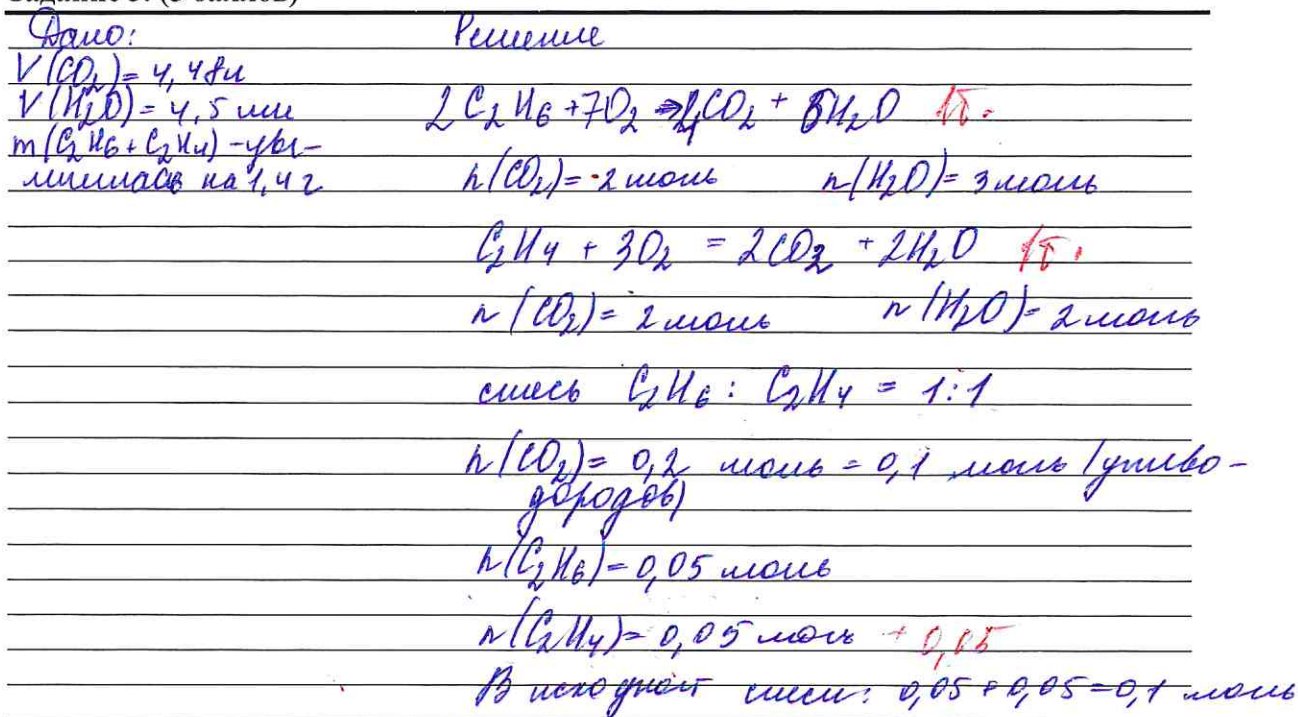 Дано:
Решение
V(CO₂) = 4,48л
V(H₂O) = 4,5 мл
m(C₂H₆ + C₂H₄) - уве-
личилась на 1,4 г
2 C₂H₆ + 7O₂ → 4CO₂ + 6H₂O 1б.
n(CO₂) = 2 моль n(H₂O) = 3 моль
C₂H₄ + 3O₂ = 2CO₂ + 2H₂O 1б.
n(CO₂) = 2 моль n(H₂O) = 2 моль
смесь C₂H₆ : C₂H₄ = 1:1
n(CO₂) = 0,2 моль = 0,1 моль (углево-
дородов)
n(C₂H₆) = 0,05 моль
n(C₂H₄) = 0,05 моль + 0,05
В исходной смеси: 0,05 + 0,05 = 0,1 моль